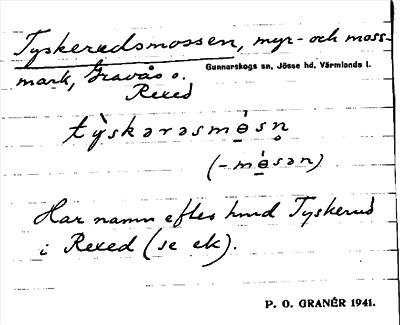 Tyskerudsmossen, myr- och moss-
mark, Gravås o. Gunnarskogs sn, Jösse hd, Värmlands l.
Rexed
tỳskərəsmò̱sn̥
(-mò̱sən)
Har namn efter hmd Tyskerud
i Rexed (se ek).
P. O. GRANÉR 1941.